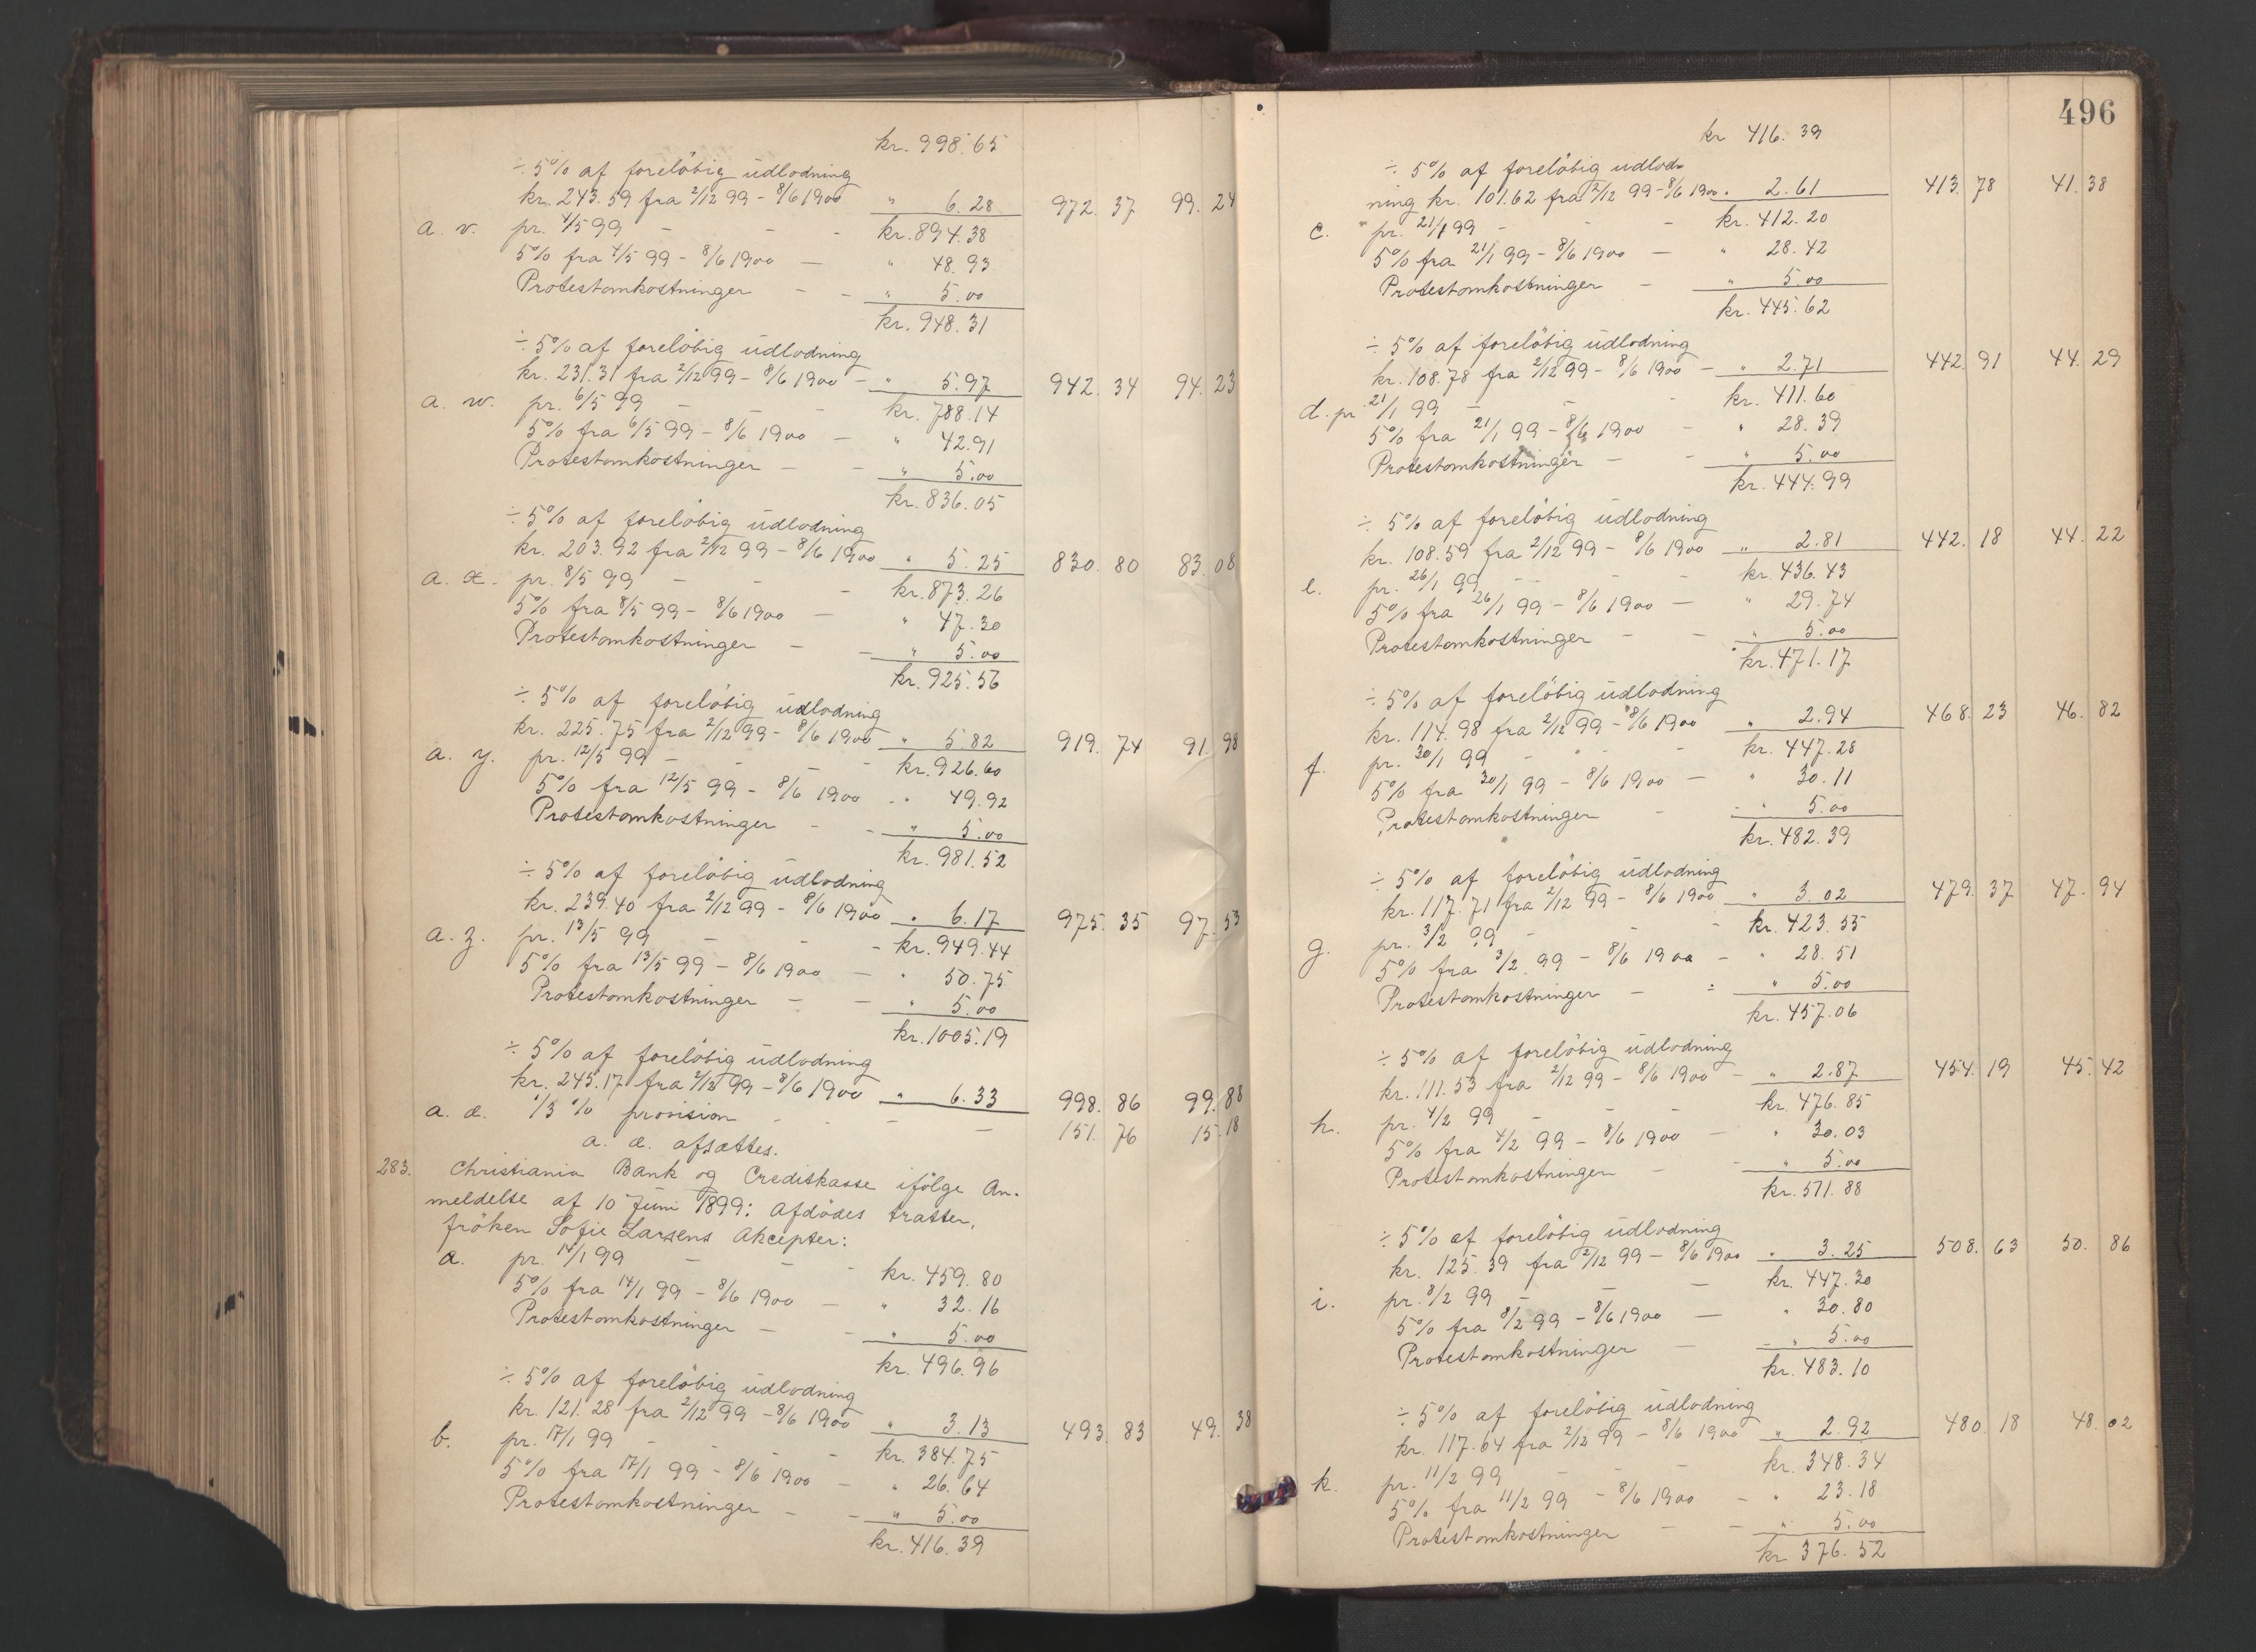 kr. 998.65
÷ 5% af foreløbig udlodning
kr. 243.59 fra 2/12 99 - 8/6 1900 " 6.28 972.37 99.24
a. v. pr. 4/5 99 - - - kr. 894.38
5% fra 4/5 99 - 8/6 1900 - " 48.93
Protestomkostninger - - " 5.00
kr. 948.31
÷ 5% af foreløbig udlodning
kr. 231.31 fra 2/12 99 - 8/6 1900 - " 5.97 942.34 94.23
a. w. pr. 6/5 99 - - - kr. 788.14
5% fra 6/5 99 - 8/6 1900 - " 42.91
Protestomkostninger - - " 5.00
kr. 836.05
÷ 5% af foreløbig udlodning
kr. 203.92 fra 2/12 99 - 8/6 1900 " 5.25 830.80 83.08
a. x. pr. 8/5 99 - - - kr. 873.26
5% fra 8/5 99 - 8/6 1900 - " 47.30
Protestomkostninger - - " 5.00
kr. 925.56
÷ 5% af foreløbig udlodning
kr. 225.75 fra 2/12 99 - 8/6 1900 " 5.82 919.74 91.98
a. y. pr. 12/5 99 - - - - kr. 926.60
5% fra 12/5 99 - 8/6 1900 - " 49.92
Protestomkostninger - - " 5.00
kr. 981.52
÷ 5% af foreløbig udlodning
kr. 239.40 fra 2/12 99 - 8/6 1900 " 6.17 975.35 97.53
a. z. pr. 13/5 99 - - - kr. 949.44
5% fra 13/5 99 - 8/6 1900 - " 50.75
Protestomkostninger - - " 5.00
kr. 1005.19
÷ 5% af foreløbig udlodning
kr. 245.17 fra 2/12 99 - 8/6 1900 " 6.33 998.86 99.88
a. æ. 1/3 % provision - - - - 151.76 15.18
a. æ. afsættes.
283. Christiania Bank og Creditkasse ifølge An-
meldelse af 10 Juni 1899: Afdødes tratter,
frøken Sofie Larsens Akcepter:
a. pr. 14/1 99 - - - kr. 459.80
5% fra 14/1 99 - 8/6 1900 - " 32.16
Protestomkostninger - - " 5.00
kr. 496.96
÷ 5% af foreløbig udlodning
kr. 121.28 fra 2/12 99 - 8/6 1900 " 3.13 493.83 49.38
b. pr. 17/1 99 - - - - kr. 384.75
5% fra 17/1 99 - 8/6 1900 - " 26.64
Protestomkostninger - - " 5.00
kr. 416.39
496
kr 416.39
÷ 5% af foreløbig udlod-
ning kr. 101.62 fra 2/12 99 - 8/6 1900 " 2.61 413.78 41.38
c. pr. 21/1 99 - - - kr. 412.20
5% fra 21/1 99 - 8/6 1900 - " 28.42
Protestomkostninger - " 5.00
kr. 445.62
÷ 5% af foreløbig udlodning
kr. 108.78 fra 2/12 99 - 8/6 1900 - " 2.71 442.91 44.29
d. pr 21/1 99 - - - kr. 411.60
5% fra 21/1 99 - 8/6 1900 - " 28.39
Protestomkostninger - - " 5.00
kr. 444.99
÷ 5% af foreløbig udlodning
kr. 108.59 fra 2/12 99 - 8/6 1900 " 2.81 442.18 44.22
e. pr. 26/1 99 - - - kr. 436.43
5% fra 26/1 99 - 8/6 1900 - " 29.74
Protestomkostninger - - " 5.00
kr. 471.17
÷ 5% af foreløbig udlodning
kr. 114.98 fra 2/12 99 - 8/6 1900 " 2.94 468.23 46.82
f. pr. 30/1 99 - - - kr. 447.28
5% fra 30/1 99 - 8/6 1900 - " 30.11
Protestomkostninger - - " 5.00
kr. 482.39
÷ 5% af foreløbig udlodning
kr. 117.71 fra 2/12 99 - 8/6 1900 " 3.02 479.37 47.94
g. pr. 3/2 99 - - - kr. 423.55
5% fra 3/2 99 - 8/6 1900 - " 28.51
Protestomkostninger - - " 5.00
kr. 457.06
÷ 5% af foreløbig udlodning
kr. 111.53 fra 2/12 99 - 8/6 1900 - " 2.87 454.19 45.42
h. pr. 4/2 99 - - - kr. 476.85
5% fra 4/2 99 - 8/6 1900 - " 30.03
Protestomkostninger - - " 5.00
kr. 511.88
÷ 5% af foreløbig udlodning
kr. 125.39 fra 2/12 99 - 8/6 1900 " 3.25 508.63 50.86
i. pr. 8/2 99 - - kr. 447.30
5% fra 8/2 99 - 8/6 1900 - " 30.80
Protestomkostninger - - " 5.00
kr. 483.10
÷ 5% af foreløbig udlodning
kr. 117.64 fra 2/12 99 - 8/6 1900 " 2.92 480.18 48.02
k. pr. 11/2 99 - - - kr. 348.34
5% fra 11/2 99 - 8/6 1900 - " 23.18
Protestomkostninger - - " 5.00
kr 376.52